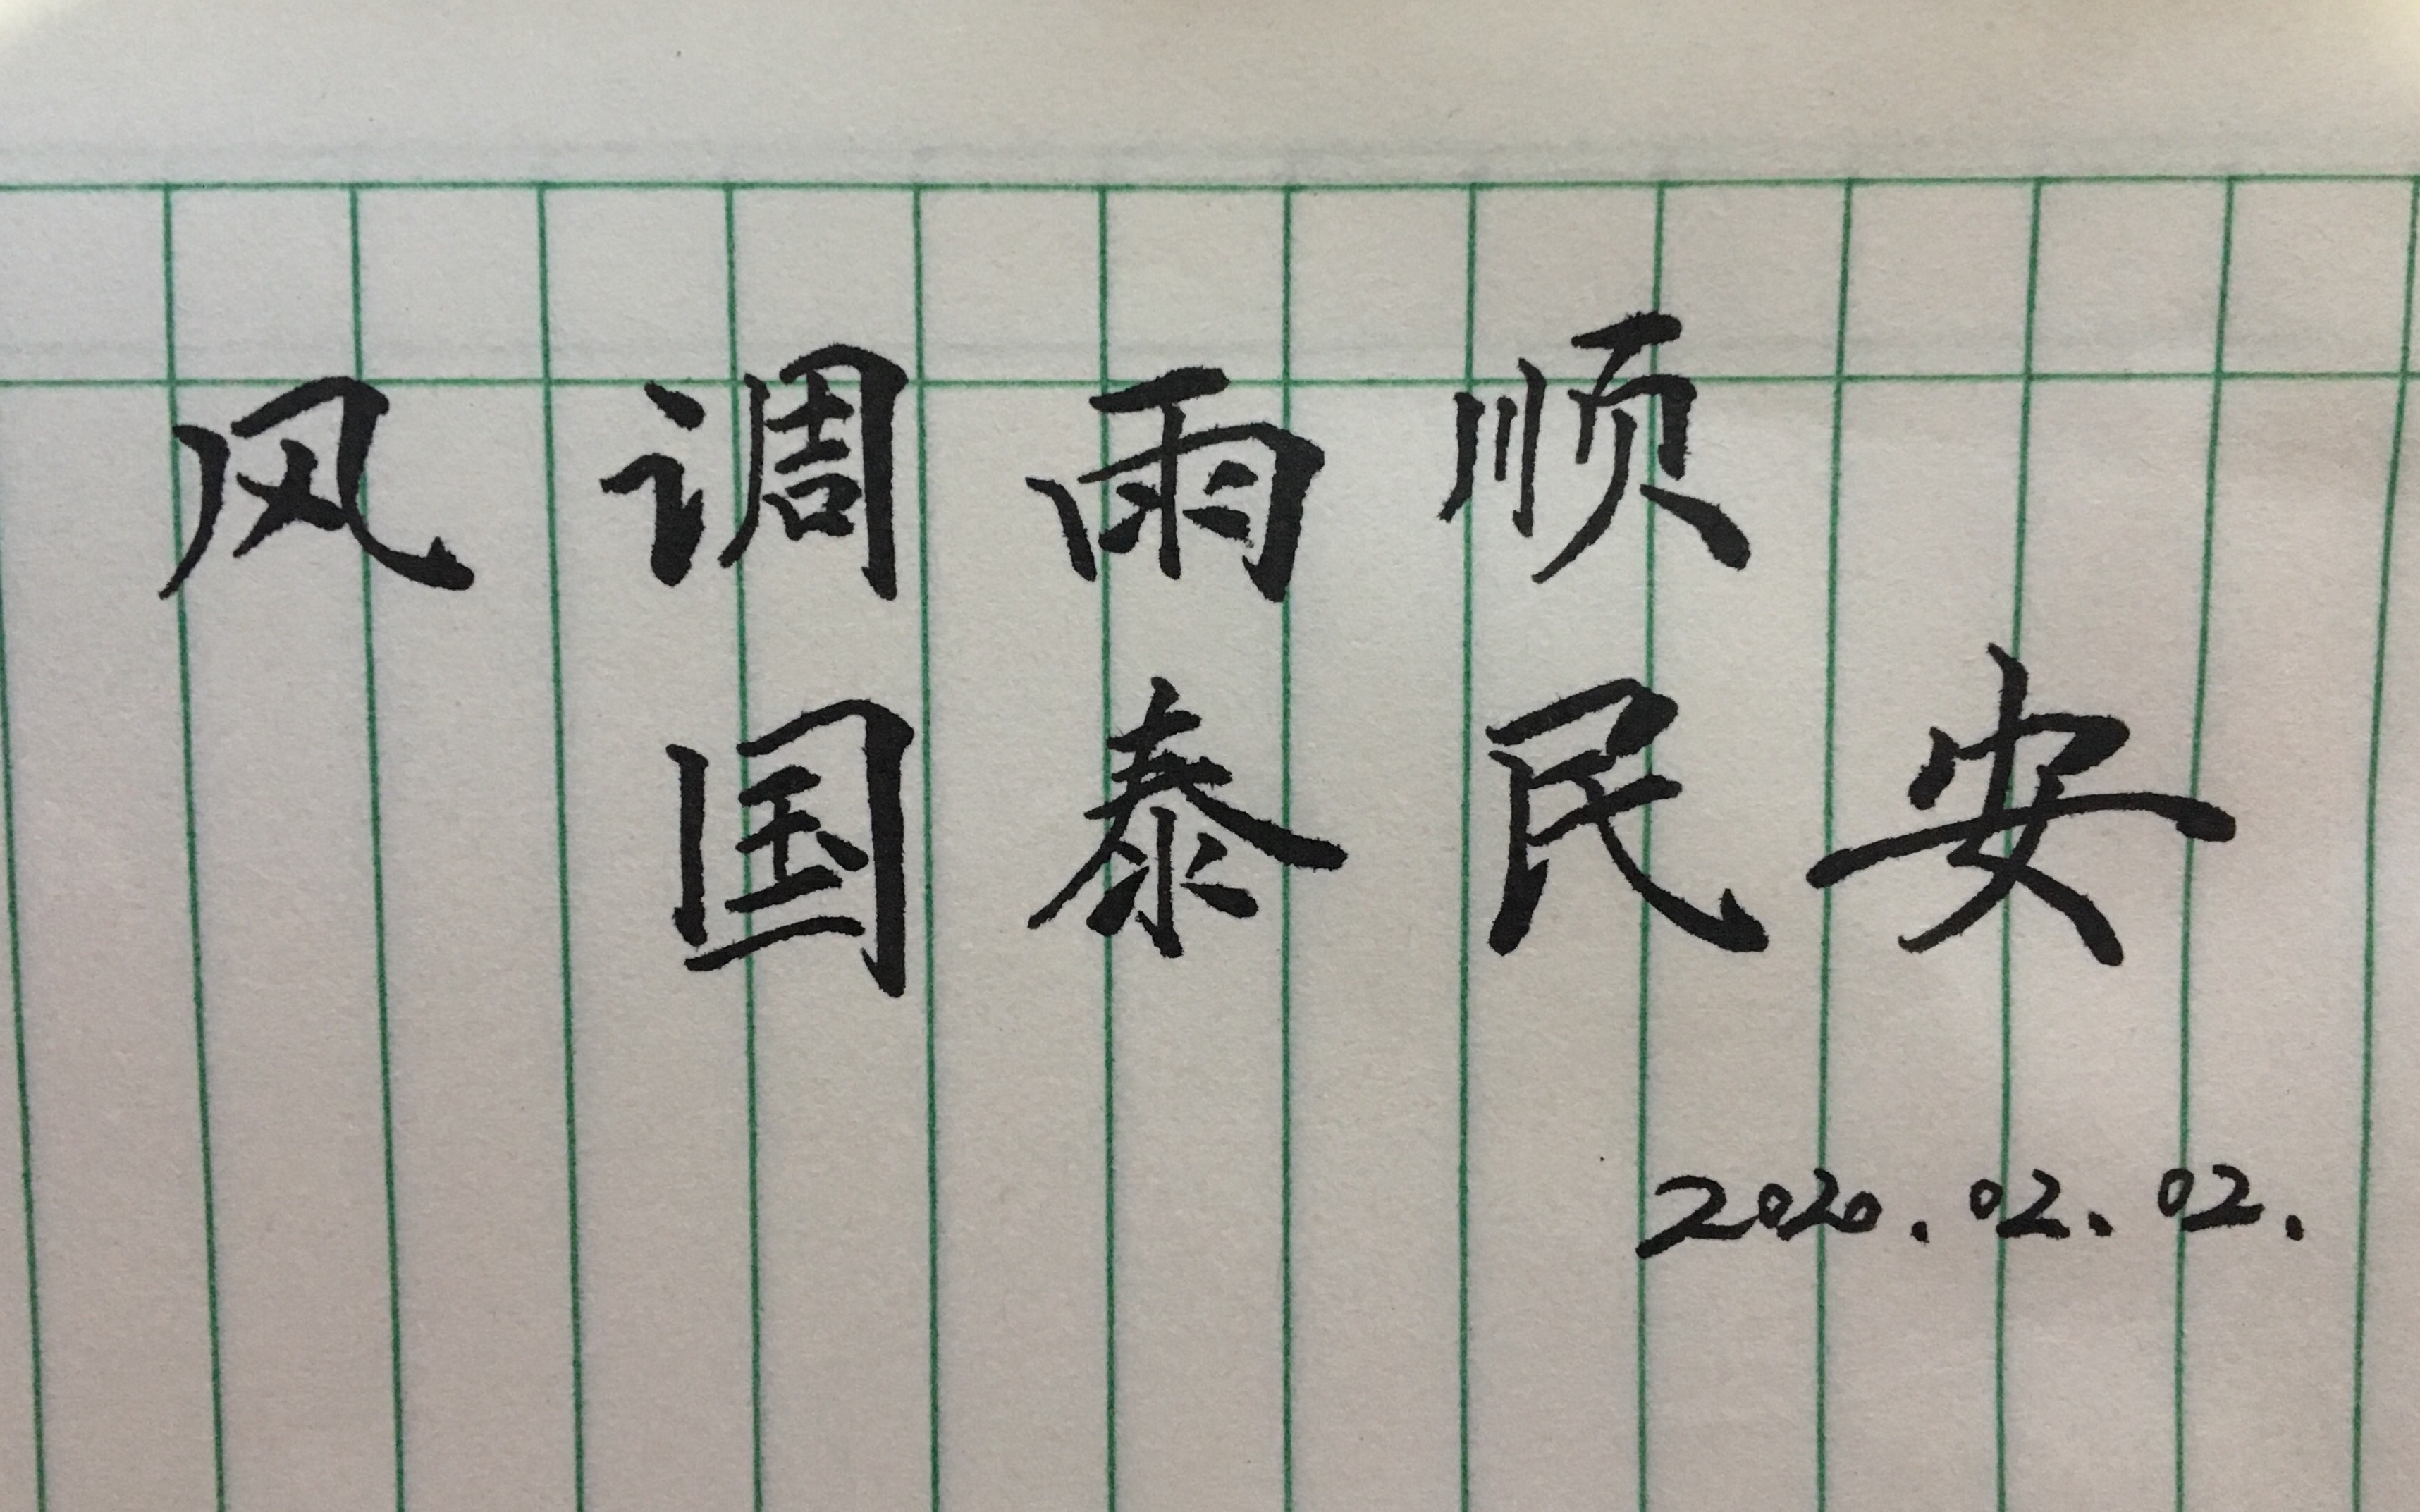 风调雨顺
国泰民安
2020.02.02.